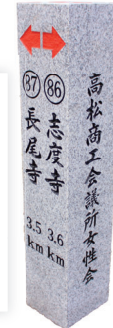 高松商工会議所女性会
86 志度寺 3.6km
87 長尾寺 3.5km